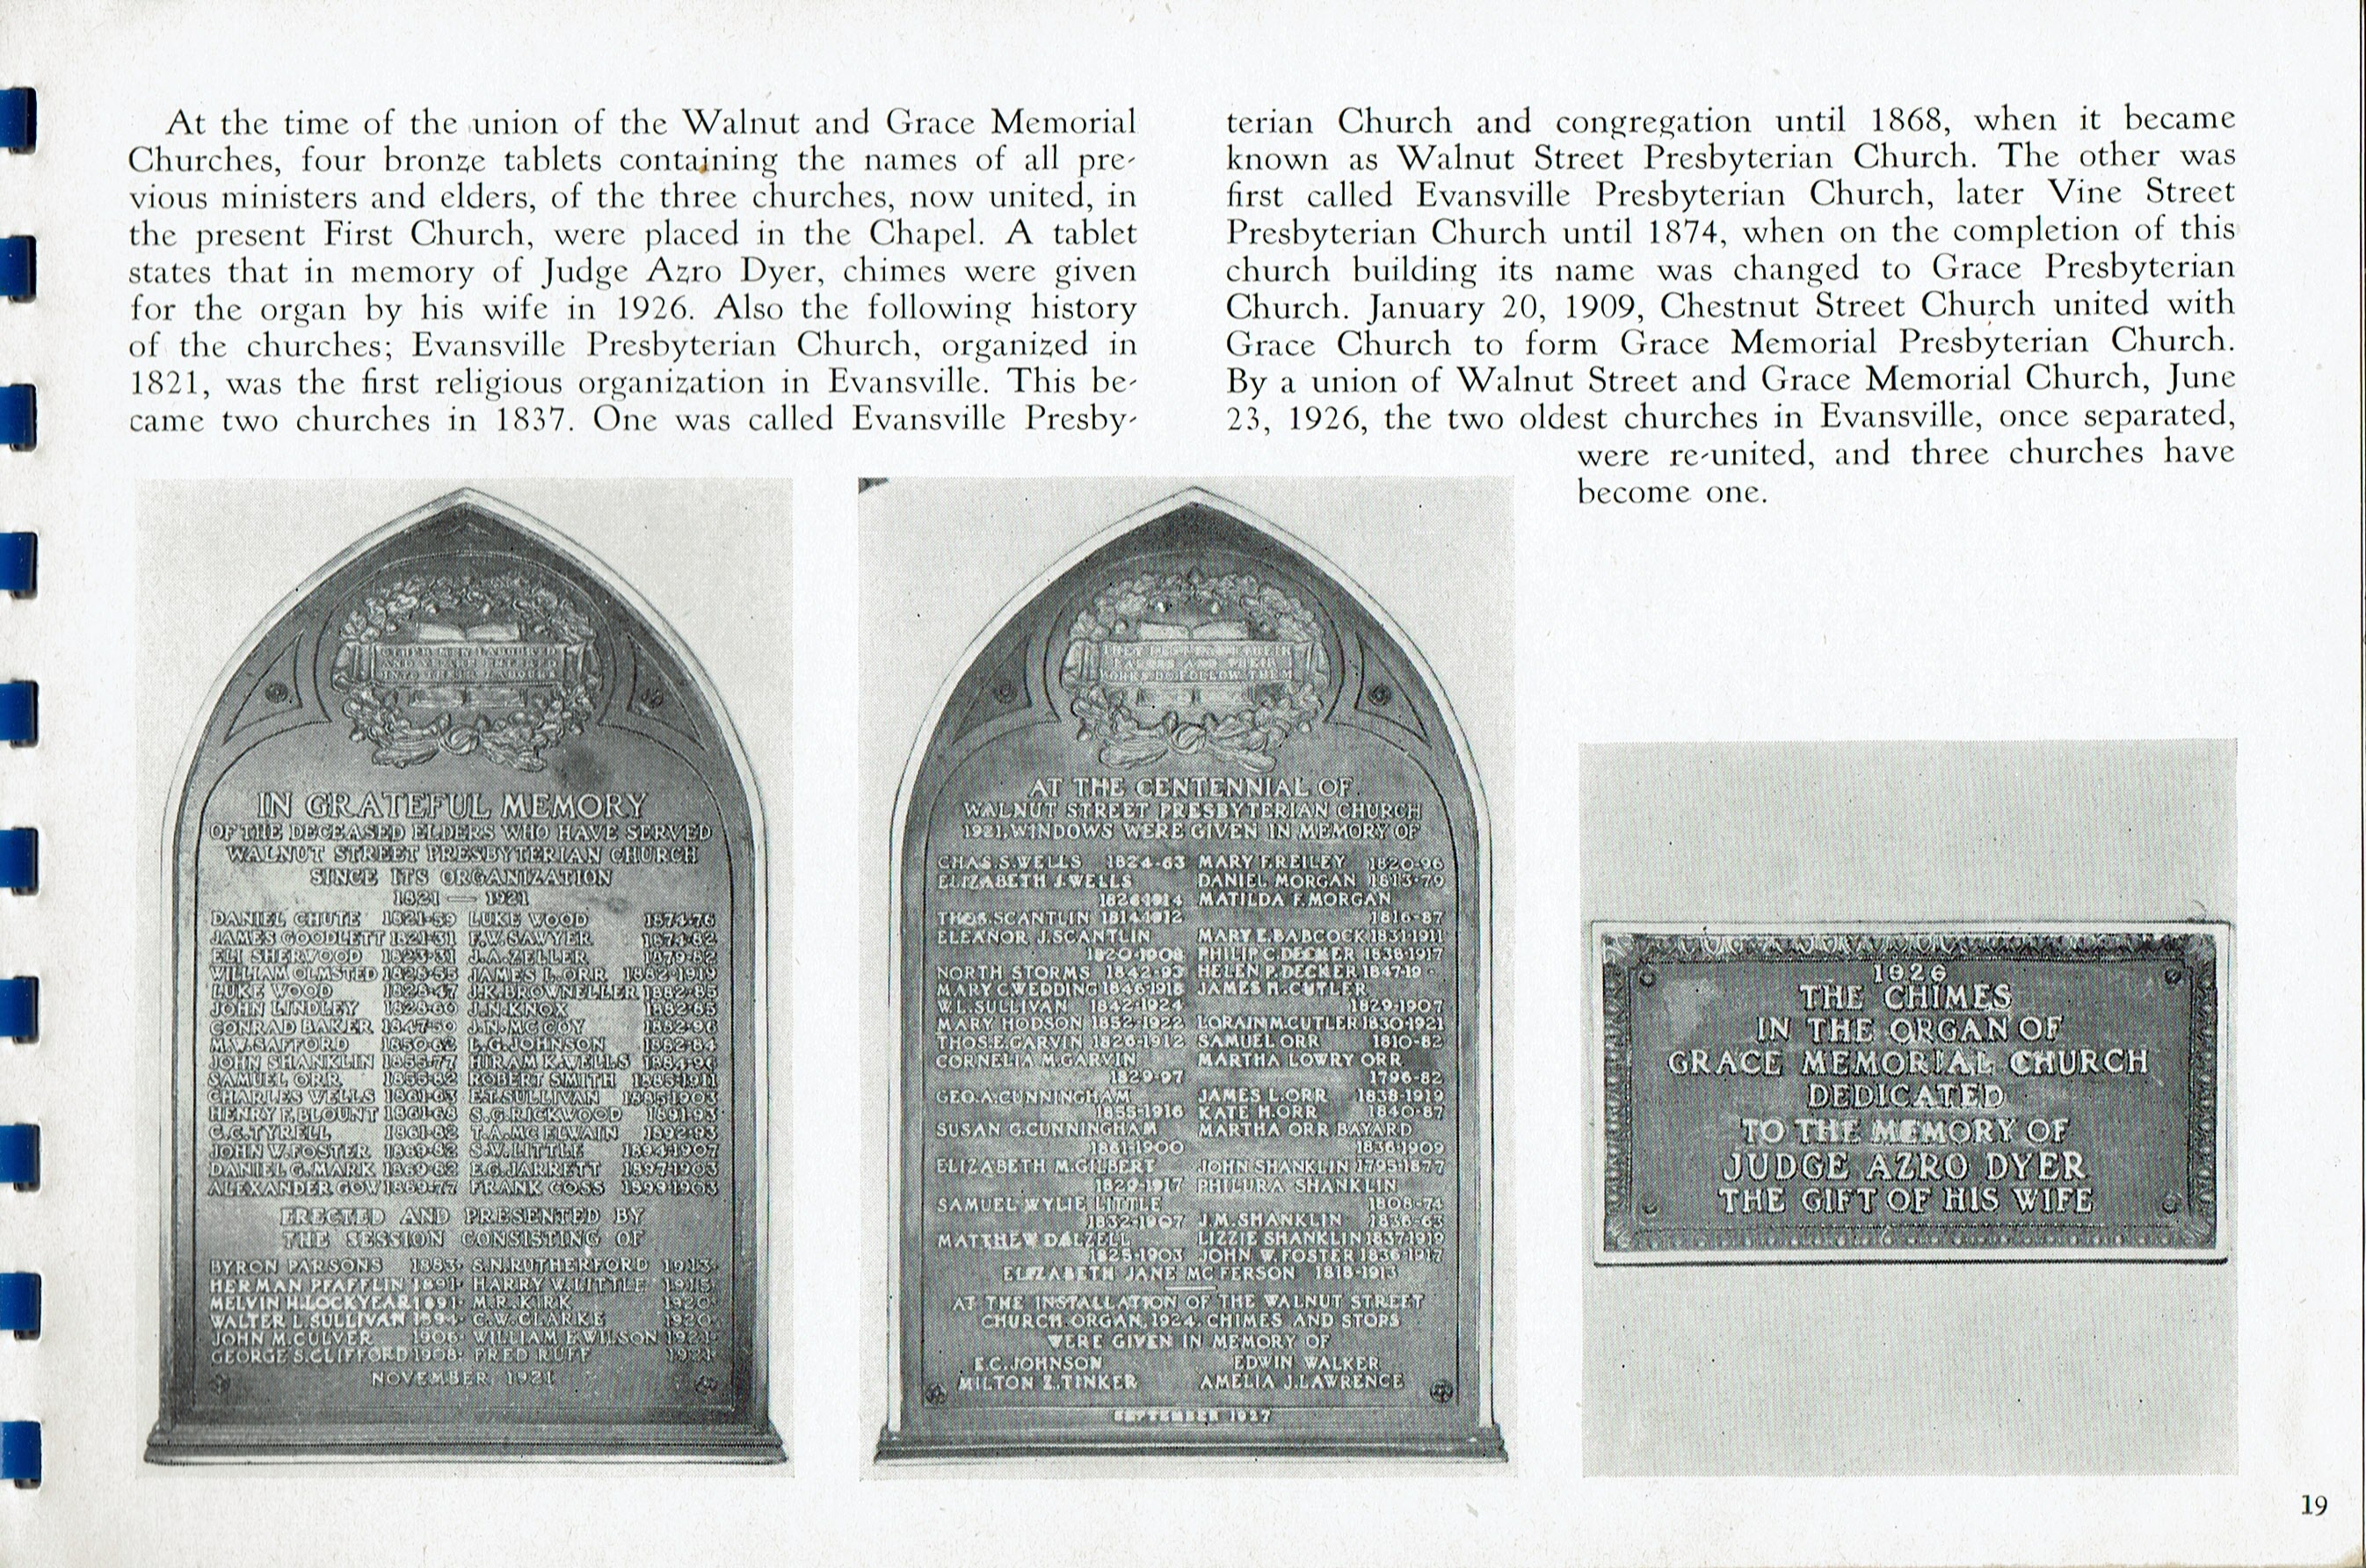 At the time of the union of the Walnut and Grace Memorial
Churches, four bronze tablets containing the names of all pre-
vious ministers and elders, of the three churches, now united, in
the present First Church, were placed in the Chapel. A tablet
states that in memory of Judge Azro Dyer, chimes were given
for the organ by his wife in 1926. Also the following history
of the churches; Evansville Presbyterian Church, organized in
1821, was the first religious organization in Evansville. This be-
came two churches in 1837. One was called Evansville Presby-
terian Church and congregation until 1868, when it became
known as Walnut Street Presbyterian Church. The other was
first called Evansville Presbyterian Church, later Vine Street
Presbyterian Church until 1874, when on the completion of this
church building its name was changed to Grace Presbyterian
Church. January 20, 1909, Chestnut Street Church united with
Grace Church to form Grace Memorial Presbyterian Church.
By a union of Walnut Street and Grace Memorial Church, June
23, 1926, the two oldest churches in Evansville, once separated,
were re-united, and three churches have
become one.
OTHER MEN LABOURED
AND YE ARE ENTERED
INTO THEIR LABOURS
IN GRATEFUL MEMORY
OF THE DECEASED ELDERS WHO HAVE SERVED
WALNUT STREET PRESBYTERIAN CHURCH
SINCE ITS ORGANIZATION
1821 — 1921
DANIEL CHUTE 1821-59 LUKE WOOD 1874-76
JAMES GOODLETT 1821-31 F.W. SAWYER 1874-82
ELI SHERWOOD 1823-31 J.A. ZELLER 1879-82
WILLIAM OLMSTED 1828-55 JAMES L. ORR 1882-1919
LUKE WOOD 1828-47 J.K. BROWNELLER 1882-85
JOHN LINDLEY 1828-60 J.N. KNOX 1882-85
CONRAD BAKER 1847-50 J.N. MC COY 1882-96
M.W. SAFFORD 1850-62 L.G. JOHNSON 1882-84
JOHN SHANKLIN 1855-77 HIRAM K. WELLS 1884-94
SAMUEL ORR 1855-82 ROBERT SMITH 1885-1911
CHARLES WELLS 1861-63 E.T. SULLIVAN 1885-1903
HENRY F. BLOUNT 1861-68 S.G. RICKWOOD 1891-93
C.C. TYRELL 1861-82 T.A. MC ELWAIN 1892-93
JOHN W. FOSTER 1869-82 S.W. LITTLE 1894-1907
DANIEL G. MARK 1869-82 E.G. JARRETT 1897-1903
ALEXANDER GOW 1869-77 FRANK GOSS 1899-1903
ERECTED AND PRESENTED BY
THE SESSION CONSISTING OF
BYRON PARSONS 1883- S.N. RUTHERFORD 1913-
HERMAN PFAFFLIN 1891- HARRY W. LITTLE 1915-
MELVIN H. LOCKYEAR 1891- M.R. KIRK 1920-
WALTER L. SULLIVAN 1894- C.W. CLARKE 1920-
JOHN M. CULVER 1906- WILLIAM E. WILSON 1921-
GEORGE S. CLIFFORD 1908- FRED RUFF 1921-
NOVEMBER, 1921
THEY REST FROM THEIR
LABORS AND THEIR
WORKS DO FOLLOW THEM
AT THE CENTENNIAL OF
WALNUT STREET PRESBYTERIAN CHURCH
1921, WINDOWS WERE GIVEN IN MEMORY OF
CHAS. S. WELLS 1824-63 MARY F. REILEY 1820-96
ELIZABETH J. WELLS DANIEL MORGAN 1813-79
1826-1914 MATILDA F. MORGAN
THOS. SCANTLIN 1814-1912 1816-87
ELEANOR J. SCANTLIN MARY E. BABCOCK 1831-1911
1820-1908 PHILIP C. DECKER 1838-1917
NORTH STORMS 1842-93 HELEN P. DECKER 1847-19
MARY C. WEDDING 1846-1918 JAMES H. CUTLER
W.L. SULLIVAN 1842-1924 1829-1907
MARY HODSON 1852-1922 LORAIN M. CUTLER 1830-1921
THOS. E. GARVIN 1826-1912 SAMUEL ORR 1810-82
CORNELIA M. GARVIN MARTHA LOWRY ORR
1829-97 1796-82
GEO. A. CUNNINGHAM JAMES L. ORR 1838-1919
1855-1916 KATE H. ORR 1840-87
SUSAN G. CUNNINGHAM MARTHA ORR BAYARD
1861-1900 1836-1909
ELIZABETH M. GILBERT JOHN SHANKLIN 1795-1877
1829-1917 PHILURA SHANKLIN
SAMUEL WYLIE LITTLE 1808-74
1832-1907 J.M. SHANKLIN 1836-63
MATTHEW DALZELL LIZZIE SHANKLIN 1837-1919
1825-1903 JOHN W. FOSTER 1836-1917
ELIZABETH JANE MC FERSON 1818-1913
AT THE INSTALLATION OF THE WALNUT STREET
CHURCH ORGAN, 1924, CHIMES AND STOPS
WERE GIVEN IN MEMORY OF
E.C. JOHNSON EDWIN WALKER
MILTON Z. TINKER AMELIA J. LAWRENCE
SEPTEMBER 1927
1926
THE CHIMES
IN THE ORGAN OF
GRACE MEMORIAL CHURCH
DEDICATED
TO THE MEMORY OF
JUDGE AZRO DYER
THE GIFT OF HIS WIFE
19